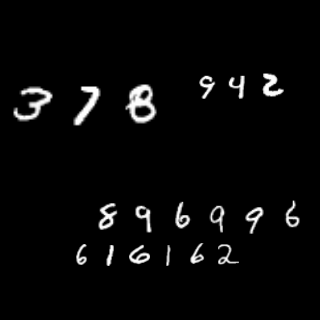 378
942
896996
616162